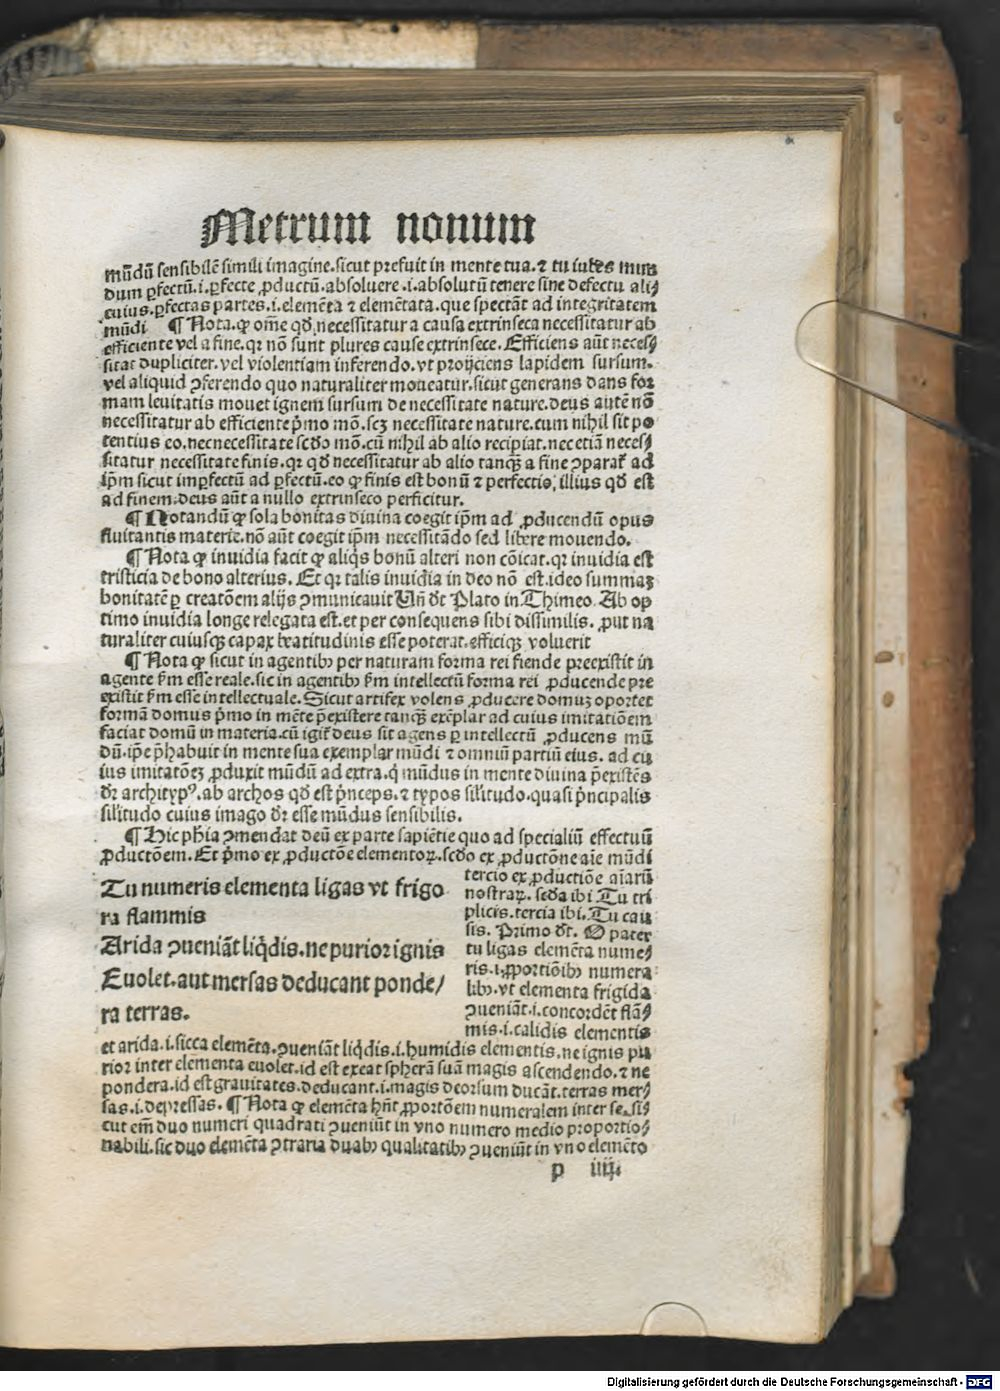 Metrum nonum
mūdū sensibilē simili imagine.sicut prefuit in mente tua.⁊ tu iubes mun
dum ꝑfectū.i.ꝑfecte ꝓductū.absoluere.i.absolutū tenere sine defectu ali⸗
cuius.ꝑfectas partes.i.elemēta ⁊ elemētata.que spectāt ad integritatem
mūdi ¶ Nota.ꝙ om̄e qd̄ necessitatur a causa extrinseca necessitatur ab
efficiente vel a fine.qꝛ nō sunt plures cause extrinsece. Efficiens aūt neces⸗
sitat dupliciter.vel violentiam inferendo.vt proijciens lapidem sursum.
vel aliquid ꝯferendo quo naturaliter moueatur.sicut generans dans for
mam leuitatis mouet ignem sursum de necessitate nature.deus autē nō
necessitatur ab efficiente p̄mo mō.scꝫ necessitate nature.cum nihil sit po
tentius eo.nec necessitate scd̄o mō.cū nihil ab alio recipiat.nec etiā neces⸗
sitatur necessitate finis.qꝛ qd̄ necessitatur ab alio tanqꝫ a fine ꝯparat̄ ad
ip̄m sicut imꝑfectū ad ꝑfectū.eo ꝙ finis est bonū ⁊ perfectio illius qd̄ est
ad finem.deus aūt a nullo extrinseco perficitur.
¶ Notandū ꝙ sola bonitas diuina coegit ip̄m ad ꝓducendū opus
fluitantis materie.nō aūt coegit ip̄m necessitādo sed libere mouendo.
¶ Nota ꝙ inuidia facit ꝙ aliq̄s bonū alteri non cōicat.qꝛ inuidia est
tristicia de bono alterius. Et qꝛ talis inuidia in deo nō est.ideo summaꝫ
bonitatē ꝑ creatōem alijs ꝯmunicauit Un̄ dt̄ Plato in Thimeo. Ab op
timo inuidia longe relegata est.et per consequens sibi dissimilis. ꝓut na
turaliter cuiusqꝫ capax beatitudinis esse poterat.efficiqꝫ voluerit
¶ Nota ꝙ sicut in agentibꝰ per naturam forma rei fiende preexistit in
agente s̄m esse reale.sic in agentibꝰ s̄m intellectū forma rei ꝓducende pre
existit s̄m esse intellectuale. Sicut artifex volens ꝓducere domuꝫ oportet
formā domus p̄mo in mēte p̄existere tanqꝫ exēplar ad cuius imitatiōem
faciat domū in materia.cū igit̄ deus sit agens ꝑ intellectū ꝓducens mū
dū.ip̄e p̄habuit in mente sua exemplar mūdi ⁊ omniū partiū eius. ad cu
ius imitatōeꝫ ꝓduxit mūdū ad extra.q̇ mūdus in mente diuina p̄existēs
dr̄ archityp⁹.ab archos qd̄ est p̄nceps.⁊ typos sil̄itudo.quasi p̄ncipalis
sil̄itudo cuius imago dr̄ esse mūdus sensibilis.
¶ Hic ph̄ia ꝯmendat deū ex parte sapiētie quo ad specialiū effectuū
ꝓductōem. Et p̄mo ex ꝓductōe elementoꝝ.scd̄o ex ꝓductōne aīe mūdi
tercio ex ꝓductiōe aīarū
nostraꝝ. scd̄a ibi Tu tri
plicis.tercia ibi.Tu cau
sis. Primo dt̄. O pater
tu ligas elemēta nume⸗
ris.i.ꝓportiōibꝰ numera
libꝰ.vt elementa frigida
ꝯueniāt.i.concordēt flā⸗
mis.i.calidis elementis
Tu numeris elementa ligas vt frigo
ra flammis
Arida ꝯueniāt liq̄dis.ne purior ignis
Euolet.aut mersas deducant ponde⸗
ra terras.
et arida.i.sicca elemēta.ꝯueniāt liq̄dis.i.humidis elementis.ne ignis pu
rior inter elementa euolet.id est exeat spherā suā magis ascendendo.⁊ ne
pondera.id est grauitates.deducant.i.magis deorsum ducāt.terras mer⸗
sas.i.depressas. ¶ Nota ꝙ elemēta hn̄t ꝓportōem numeralem inter se.si⸗
cut em̄ duo numeri quadrati ꝯueniūt in vno numero medio proportio⸗
nabili.sic duo elemēta ꝯtraria duabꝰ qualitatibꝰ ꝯueniūt in vno elemēto
p iiij.
Digitalisierung gefördert durch die Deutsche Forschungsgemeinschaft - DFG